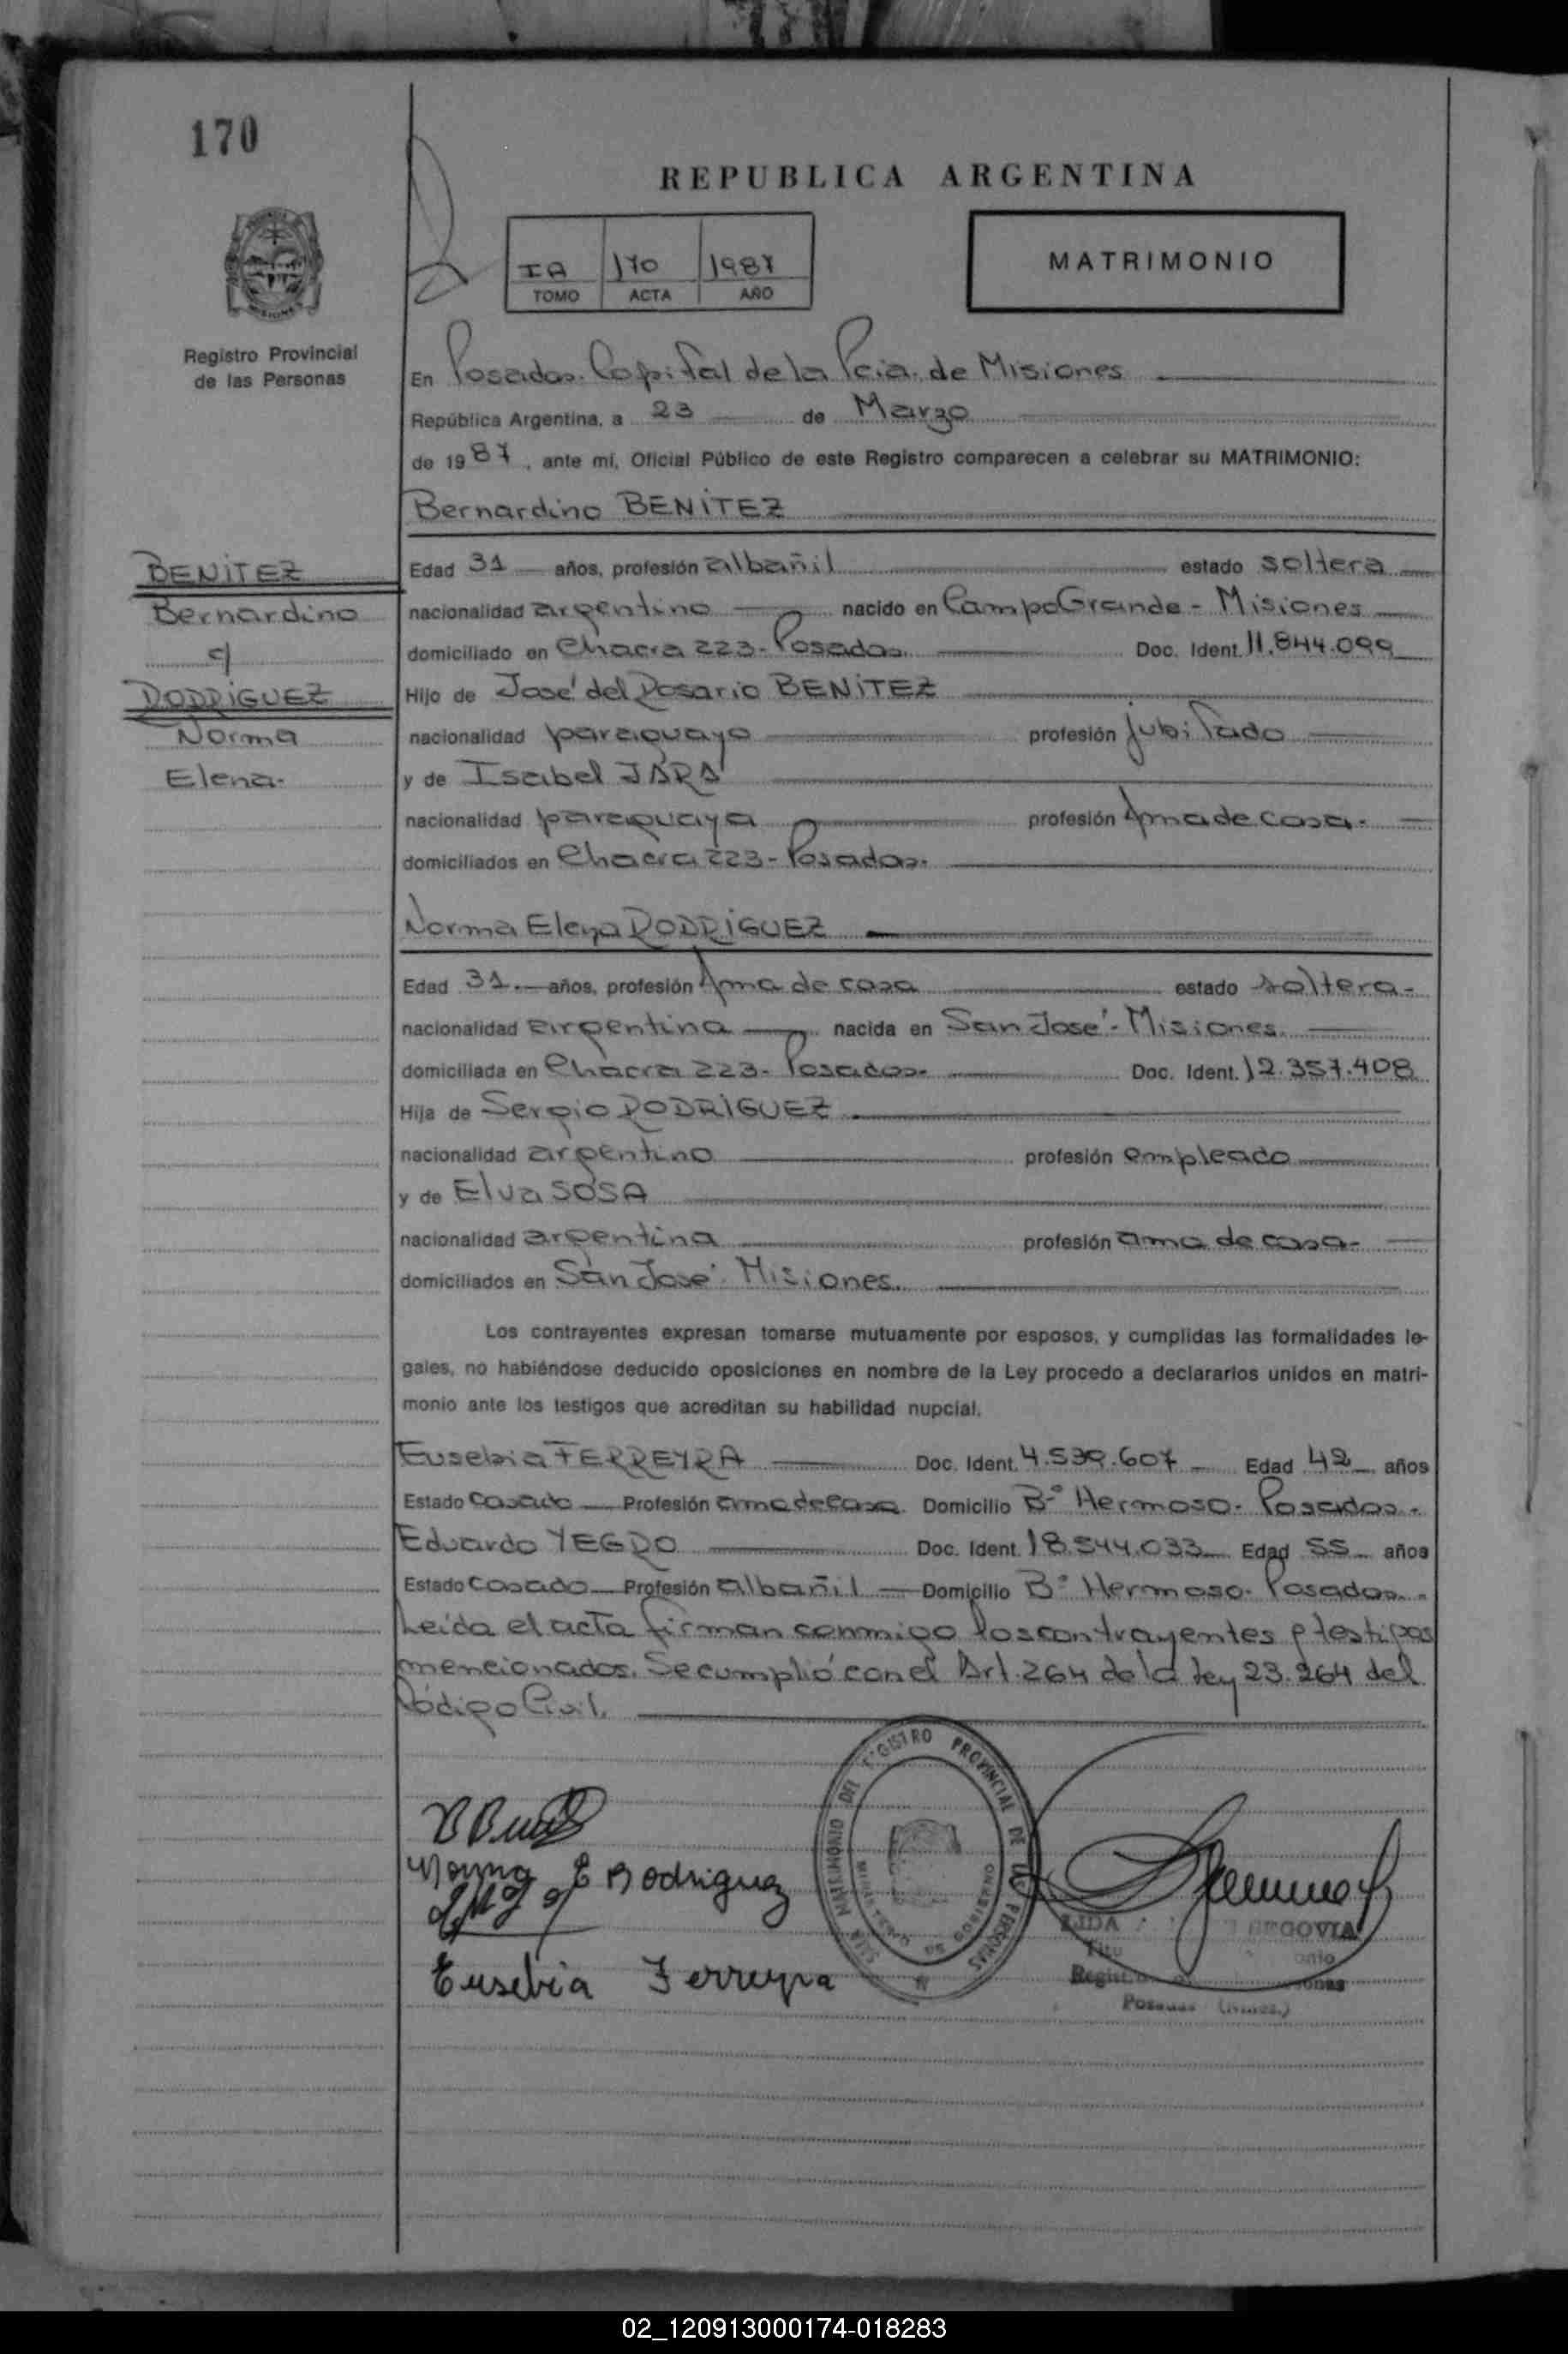 170
REPUBLICA ARGENTINA
IA 170 1987
TOMO ACTA AÑO
MATRIMONIO
Registro Provincial
de las Personas
En Posadas. Capital de la Pcia. de Misiones
República Argentina, a 23 de Marzo
de 1987, ante mí, Oficial Público de este Registro comparecen a celebrar su MATRIMONIO:
Bernardino BENITEZ
BENITEZ
Bernardino
c/
RODRIGUEZ
Norma
Elena.
Edad 31 años, profesión albañil estado soltera
nacionalidad argentino nacido en Campo Grande - Misiones
domiciliado en Chacra 223 - Posadas. Doc. Ident. 11.844.099
Hijo de José del Rosario BENITEZ
nacionalidad paraguayo profesión jubilado
y de Isabel JARA
nacionalidad paraguaya profesión Ama de casa.
domiciliados en Chacra 223 - Posadas.
Norma Elena RODRIGUEZ
Edad 31 años, profesión Ama de casa estado soltera-
nacionalidad argentina nacida en San José - Misiones.
domiciliada en Chacra 223 - Posadas. Doc. Ident. 12.357.408
Hija de Sergio RODRIGUEZ
nacionalidad argentino profesión empleado
y de Elva SOSA
nacionalidad argentina profesión ama de casa-
domiciliados en San José. Misiones.
Los contrayentes expresan tomarse mutuamente por esposos, y cumplidas las formalidades le-
gales, no habiéndose deducido oposiciones en nombre de la Ley procedo a declararlos unidos en matri-
monio ante los testigos que acreditan su habilidad nupcial.
Eusebia FERREYRA Doc. Ident. 4.539.607 Edad 42 años
Estado Casado Profesión ama de casa Domicilio Bº Hermoso - Posadas.
Eduardo YEGRO Doc. Ident. 18.544.033 Edad 55 años
Estado Casado Profesión albañil Domicilio Bº Hermoso - Posadas.
Leída el acta firman conmigo los contrayentes e testigos
mencionados. Se cumplió con el Art. 264 de la Ley 23.264 del
Código Civil.
Norma E Rodriguez
Eusebia Ferreyra
REGISTRO PROVINCIAL DE LAS PERSONAS
SEGOVIA
Posadas (Mnes.)
02_120913000174-018283